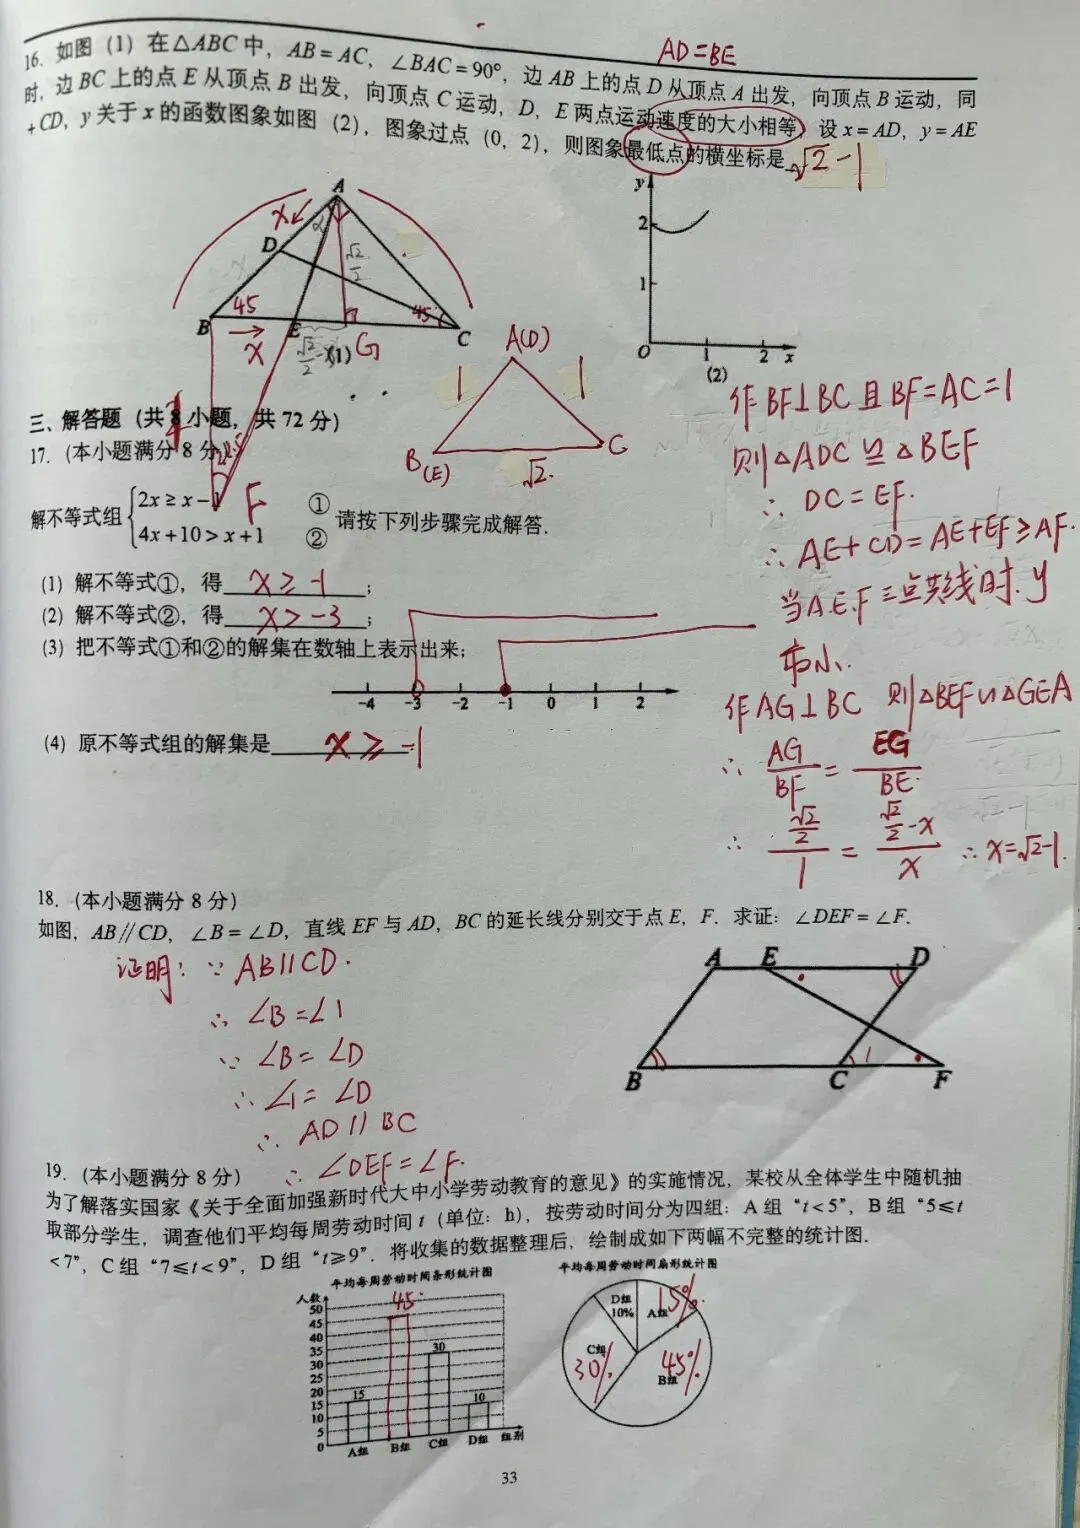 AD=BE
16. 如图（1）在△ABC中，AB=AC，∠BAC=90°，边AB上的点D从顶点A出发，向顶点B运动，同
时，边BC上的点E从顶点B出发，向顶点C运动，D，E两点运动速度的大小相等，设x=AD，y=AE
+CD，y关于x的函数图象如图（2），图象过点（0，2），则图象最低点的横坐标是 √2-1
A
x
D
α
√2/2
45
45°
B
E
C
x
√2/2-x
(1)
G
F
A(D)
1
1
B(E)
√2
C
y
2
1
O
1
2
x
(2)
作BF⊥BC且BF=AC=1
则△ADC≌△BEF
∴ DC=EF.
∴ AE+CD=AE+EF≥AF.
当A.E.F三点共线时.y
布小.
作AG⊥BC 则△BEF∽△GEA
∴ AG/BF = EG/BE
∴ (√2/2)/1 = (√2/2-x)/x ∴ x=√2-1.
三、解答题（共8小题，共72分）
17.（本小题满分8分）
解不等式组{2x≥x-1 ①
4x+10>x+1 ② 请按下列步骤完成解答.
（1）解不等式①，得 x≥-1；
（2）解不等式②，得 x>-3；
（3）把不等式①和②的解集在数轴上表示出来；
-4 -3 -2 -1 0 1 2
（4）原不等式组的解集是 x≥-1
18.（本小题满分8分）
如图，AB∥CD，∠B=∠D，直线EF与AD，BC的延长线分别交于点E，F. 求证：∠DEF=∠F.
证明：∵ AB∥CD.
∴ ∠B=∠1
∵ ∠B=∠D
∴ ∠1=∠D
∴ AD∥BC
∴ ∠DEF=∠F.
A E D
1
B C F
19.（本小题满分8分）
为了解落实国家《关于全面加强新时代大中小学劳动教育的意见》的实施情况，某校从全体学生中随机抽
取部分学生，调查他们平均每周劳动时间t（单位：h），按劳动时间分为四组：A组“t<5”，B组“5≤t
<7”，C组“7≤t<9”，D组“t≥9”. 将收集的数据整理后，绘制成如下两幅不完整的统计图.
平均每周劳动时间条形统计图
人数
50
45
40
35
30
25
20
15
10
5
0
15
45
30
10
A组 B组 C组 D组 组别
平均每周劳动时间扇形统计图
D组
10%
A组 15%
C组
30%
45%
B组
33